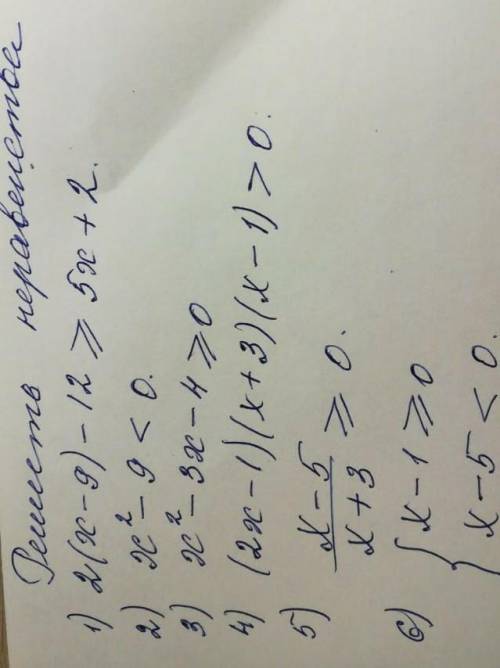 Решить неравенства
1) 2(x-9)-12 ⩾ 5x+2.
2) x²-9<0.
3) x²-3x-4⩾0
4) (2x-1)(x+3)(x-1)>0.
5) (x-5)/(x+3) ⩾ 0.
6) { x-1⩾0
x-5<0.